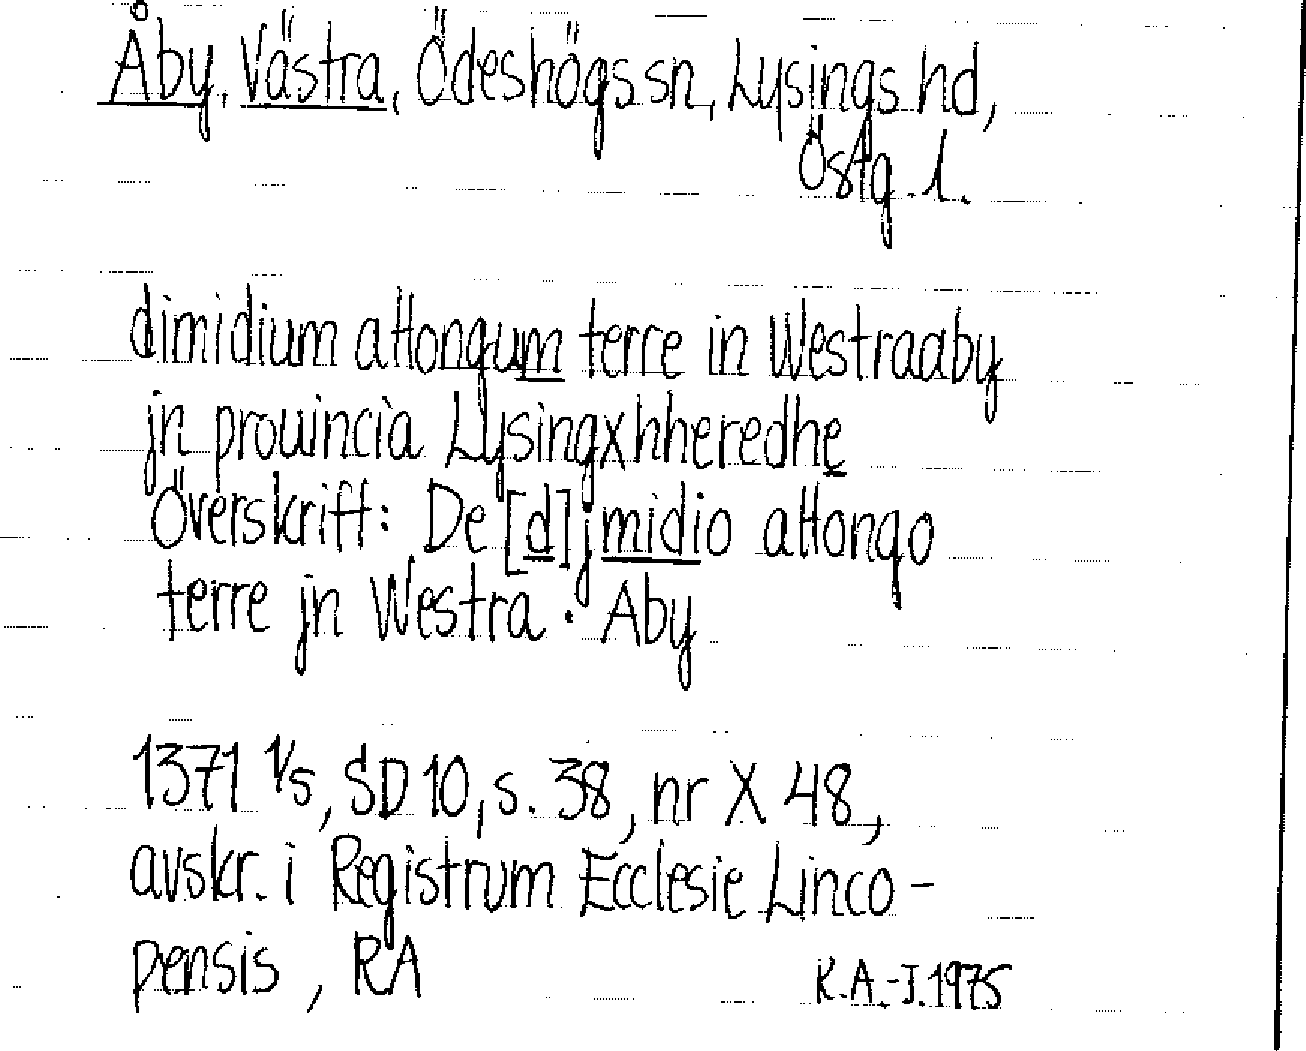 Åby, Västra, Ödeshögs sn, Lysings hd,
Östg. l.
dimidium attongum terre in Westraaby
jn prouincia Lysingxhheredhe
Överskrift: De [d]jmidio attongo
terre jn Westra · Aby
1371 1/5, SD 10, s. 38, nr X 48,
avskr. i Registrum Ecclesie Linco-
pensis, RA
K.A.-J. 1975